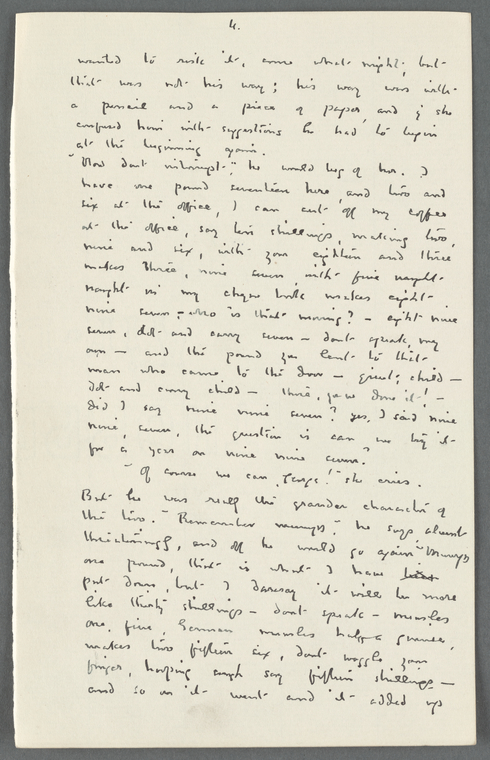 4.
wanted to risk it, come what might, but
that was not his way; his way was with
a pencil and a piece of paper, and if she
confused him with suggestions he had to begin
at the beginning again.
"Now don't interrupt," he would beg of her. I
have one pound seventeen here, and two and
six at the office, I can cut off my coffee
at the office, say ten shillings, making two,
nine and six, with your eighteen and three
makes three, nine seven, with five naught
naught in my cheque book makes eight
nine seven, – who is that moving? – eight nine
seven, dot and carry seven – don't speak, my
own – and the pound you lent to that
man who came to the door – quiet, child –
dot and carry child – there, you've done it! –
did I say nine nine seven? yes, I said nine
nine, seven, the question is can we try it
for a year on nine nine seven."
"Of course we can, George!" she cries.
But he was really the grander character of
the two. "Remember mumps" he says almost
threateningly, and off he would go again "Mumps
one pound, that is what I have
put down, but I daresay it will be more
like thirty shillings – don't speak – measles
one five, German measles half a guinea,
makes two fifteen six, don't waggle your
finger, hooping cough say fifteen shillings –
and so on it went and it added up